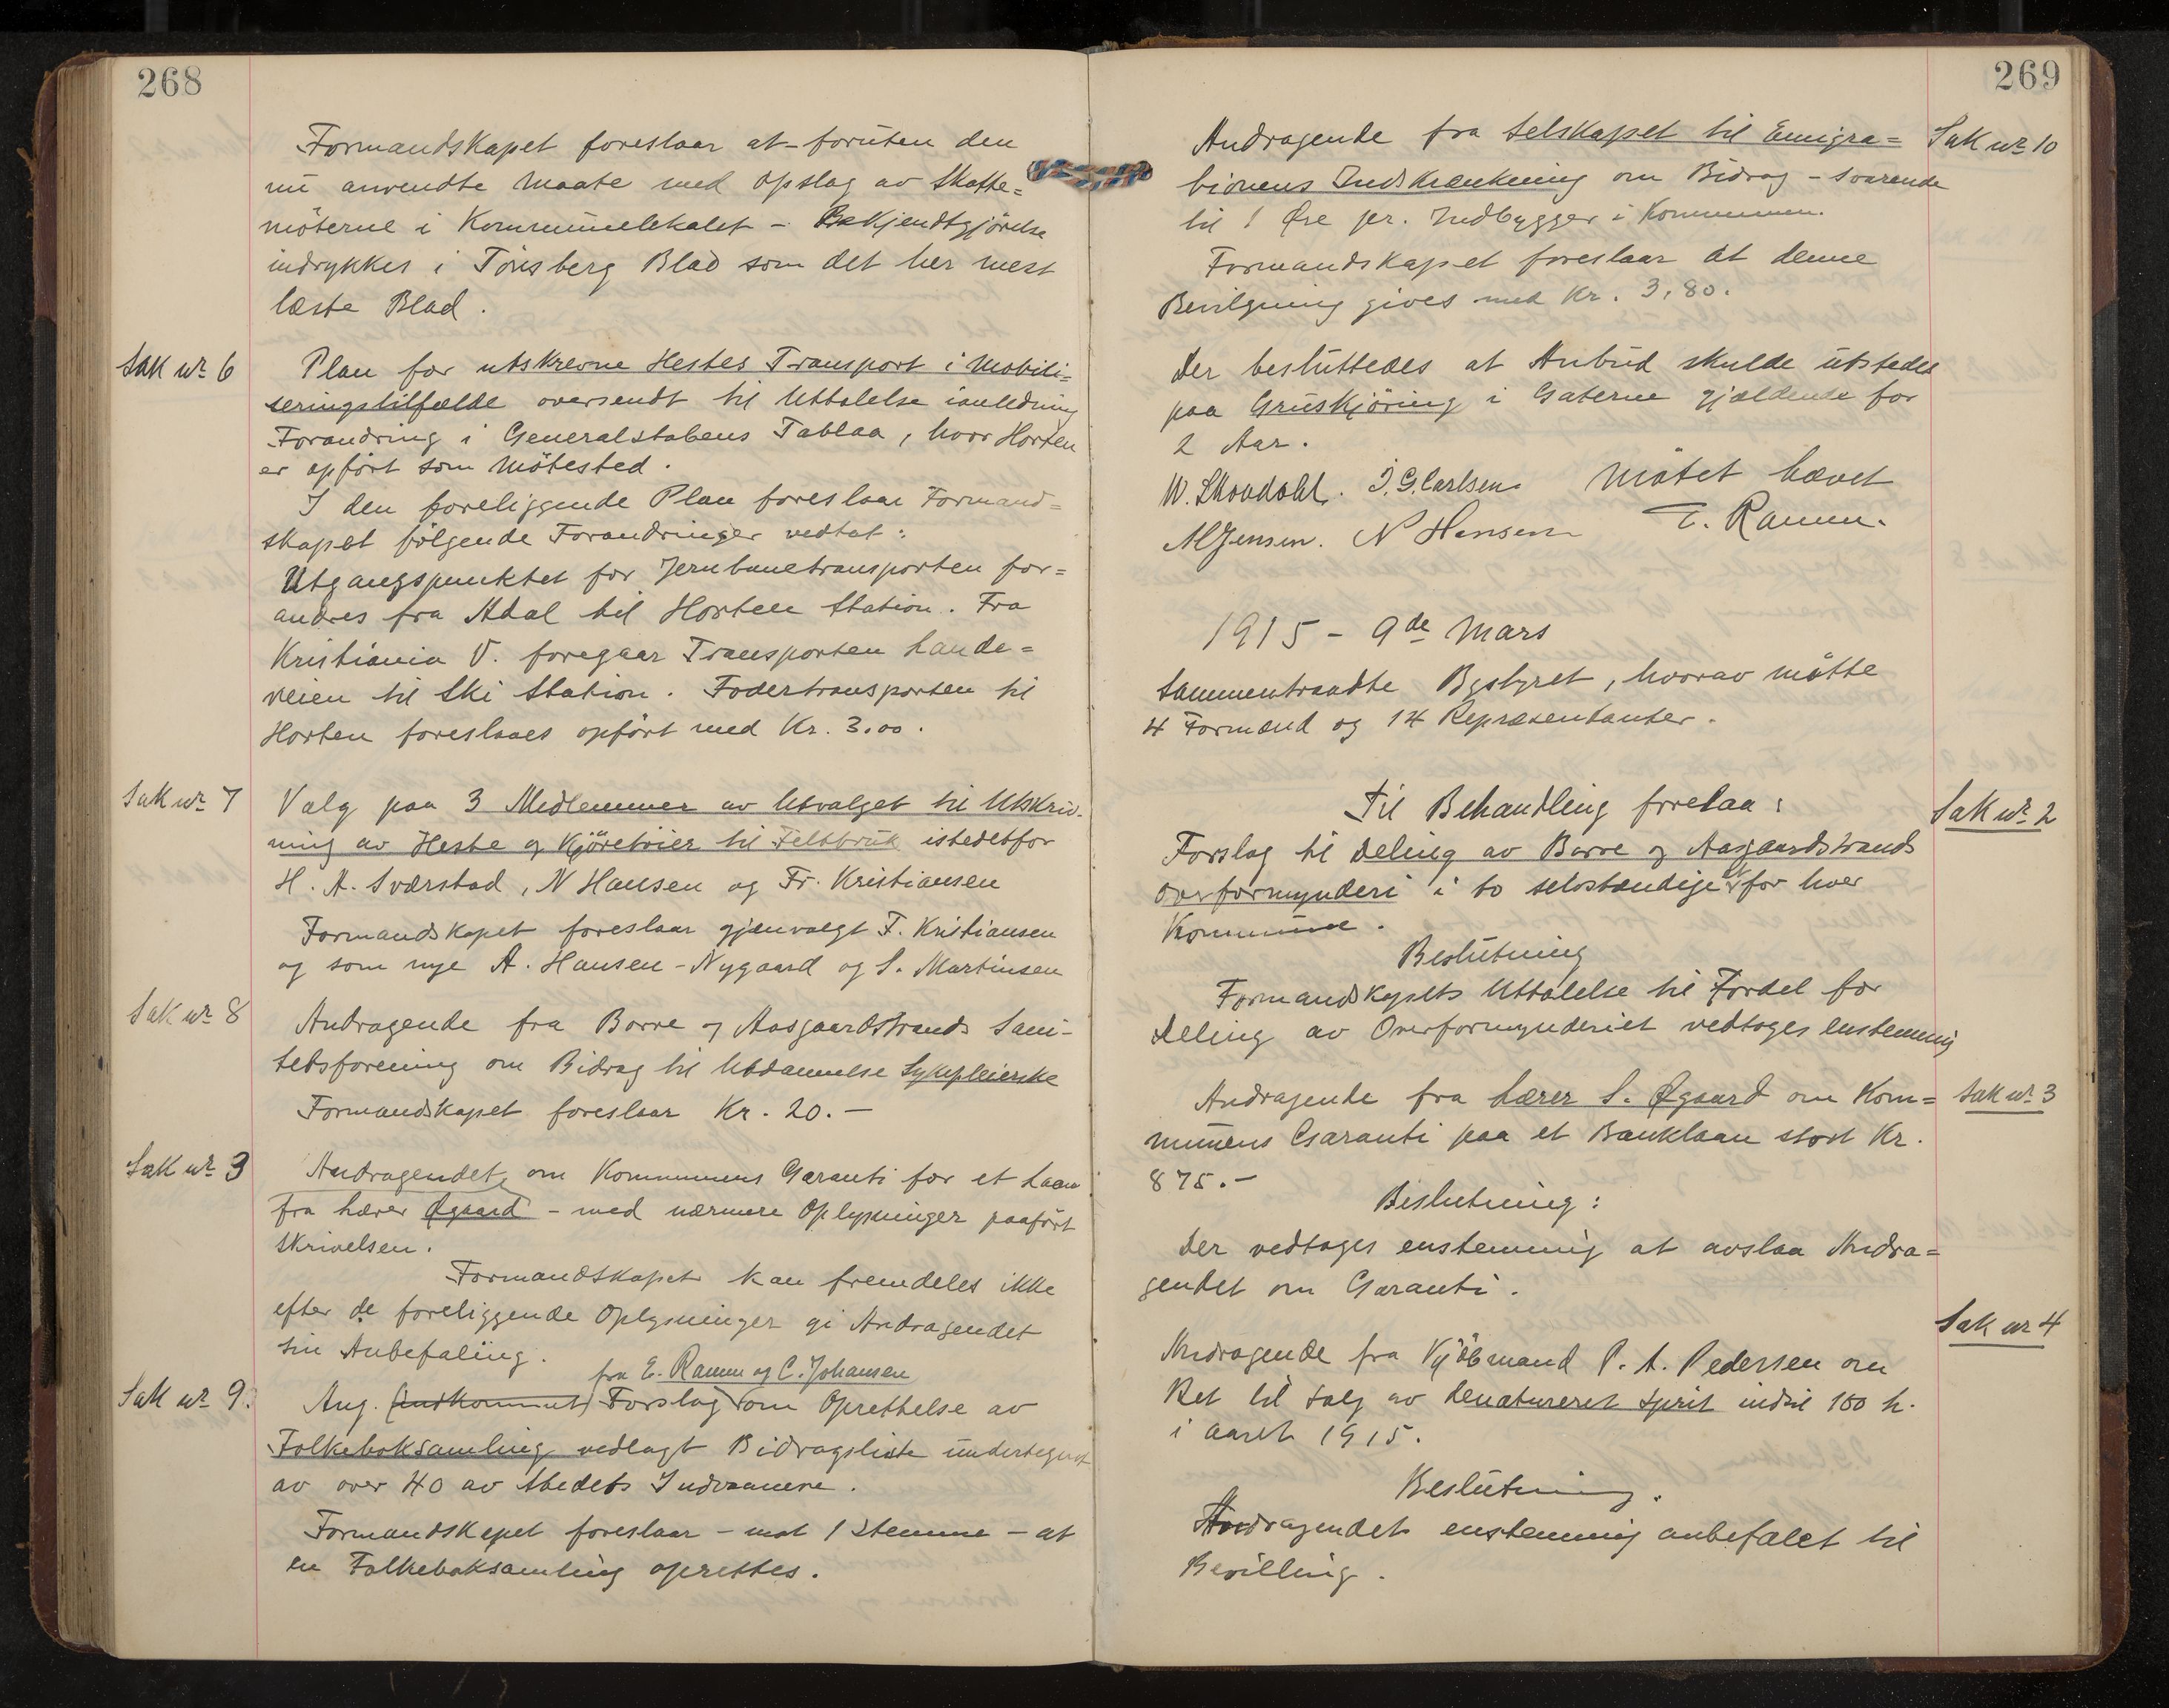 268
Formandskapet foreslaar at - foruten den
nu anvendte Maate med Opslag av Skatte=
möterne i Kommunelokalet - Bekjendtgjörelse
indrykkes i Tönsberg Blad som det her mest
læste Blad.
Sak nr 6
Plan for utskrevne Hestes Transport i Mobili=
seringstilfælde oversendt til Uttalelse ianledning
Forandring i Generalstabens Tablaa, hvor Horten
er opfört som Mötested.
I den foreliggende Plan foreslaar Formand=
skapet fölgende Forandringer vedtat:
Utgangspunktet for Jernbanetransporten for=
andres fra Adal til Horten Station. Fra
Kristiania V. foregaar Transporten lande=
veien til Ski Station. Fodertransporten til
Horten foreslaaes opfört med Kr. 3.00.
Sak nr 7
Valg paa 3 Medlemmer av Utvalget til Utskriv-
ning av Heste og Kjöretöier til Feltbruk istedetfor
H. A. Sværstad, N Hansen og Fr. Kristiansen
Formandskapet foreslaar gjenvalgt F. Kristiansen
og som nye A. Hansen-Nygaard og S. Martinsen
Sak nr 8
Andragende fra Borre og Aasgaardstrands Sani-
tetsforening om Bidrag til Utdannelse Sykepleierske
Formandskapet foreslaar Kr. 20.-
Sak nr 3
Andragendet om Kommunens Garanti for et Laan
fra Lærer Øgaard - med nærmere Oplysninger paafört
skrivelsen.
Formandskapet kan fremdeles ikke
efter de foreliggende Oplysninger gi Andragendet
sin Anbefaling.
fra E. Ramm og C. Johansen
Sak nr 9.
Ang. (indkommet) Forslag om Oprettelse av
Folkeboksamling vedlagt Bidragsliste undertegnet
av over 40 av Stedets Indvaanere.
Formandskapet foreslaar - mot 1 Stemme - at
en Folkeboksamling oprettes.
269
Andragende fra Selskapet til Emigra=
Sak nr 10
tionens Indskrænkning om Bidrag - svarende
til 1 Øre pr. Indbygger i Kommunen.
Formandskapet foreslaar at denne
Bevilgning gives med Kr. 3,80.
Der besluttedes at Anbud skulde utstedes
paa Gruskjöring i Gaterne gjældende for
2 Aar.
Mötet hævet
W. Skovdahl. J. G. Carlsen
E. Ramm.
M Jensen. N Hansen
1915 - 9de Mars
Sammentraadte Bystyret, hvorav mötte
4 Formænd og 14 Repræsentanter.
Til Behandling forelaa:
Sak nr 2
Forslag til Deling av Borre og Aasgaardstrands
Overformynderi i to selvstændige et for hver
Kommune.
Beslutning
Formandskapets Uttalelse til Fordel for
Deling av Overformynderiet vedtoges enstemmig
Andragende fra Lærer S. Øgaard om Kom=
Sak nr 3
munens Garanti paa et Banklaan stort Kr.
875.-
Beslutning:
Der vedtoges enstemmig at avslaa Andra=
gendet om Garanti.
Sak nr 4
Andragende fra Kjöbmand P. A. Pedersen om
Ret til Salg av denatureret Sprit indtil 100 L.
i Aaret 1915.
Beslutning.
Andragendet enstemmig anbefalet til
Bevilling.